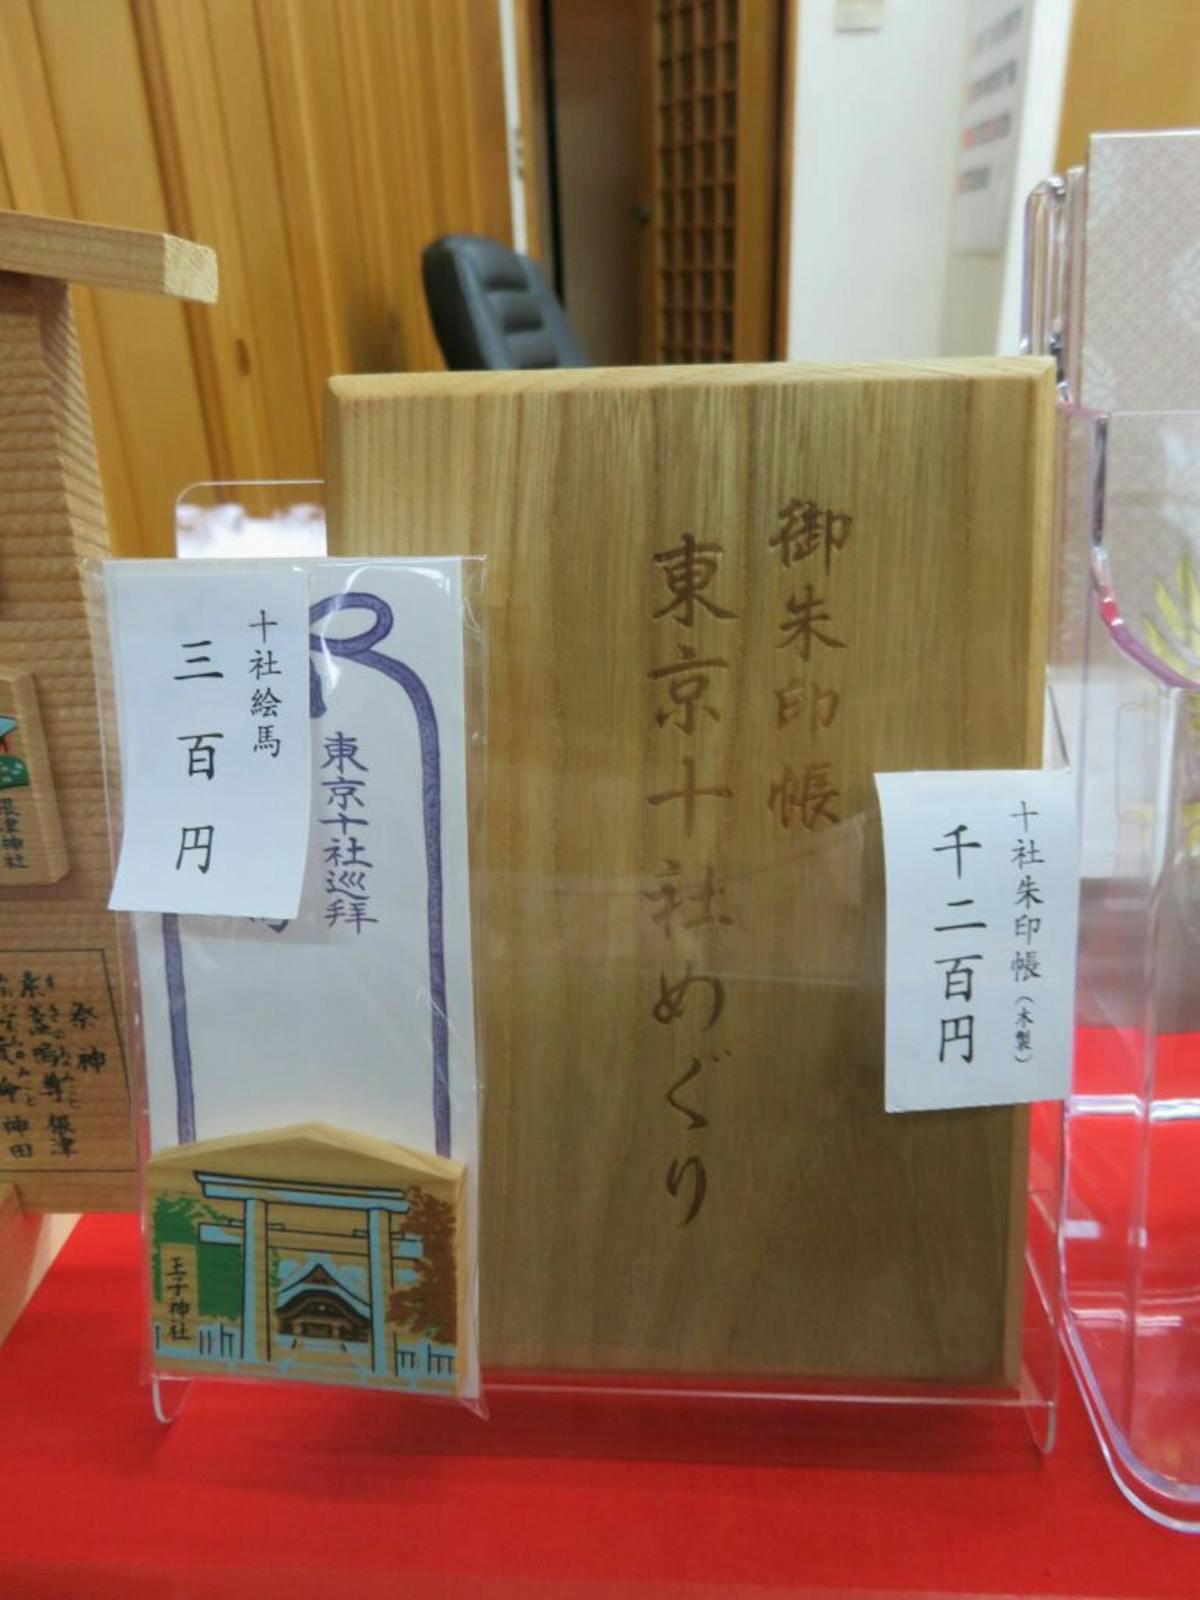 御朱印帳
東京十社めぐり
十社朱印帳(木製)
千二百円
十社絵馬
三百円
東京十社巡拝
王子神社
根津神社
祭神
根津
神田